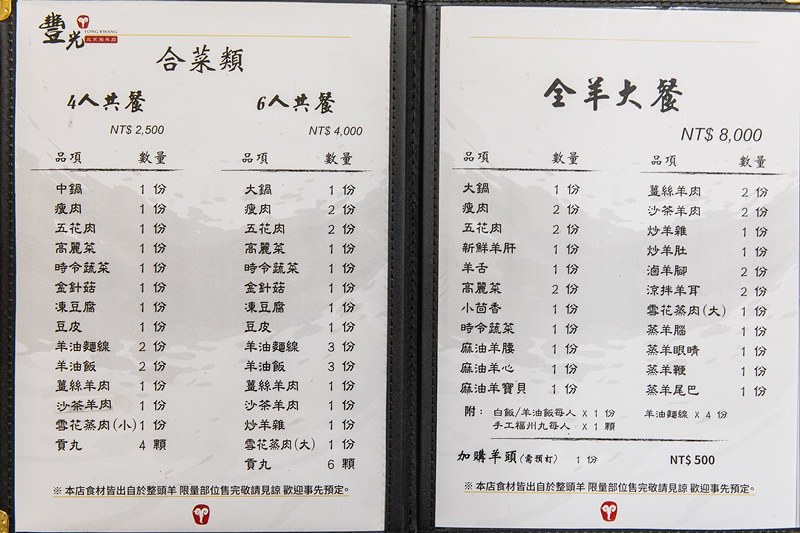 豐光
FONG KWANG
合菜類
4人共餐
NT$ 2,500
品項 數量
中鍋 1 份
瘦肉 1 份
五花肉 1 份
高麗菜 1 份
時令蔬菜 1 份
金針菇 1 份
凍豆腐 1 份
豆皮 1 份
羊油麵線 2 份
羊油飯 2 份
薑絲羊肉 1 份
沙茶羊肉 1 份
雪花蒸肉(小) 1 份
貢丸 4 顆
6人共餐
NT$ 4,000
品項 數量
大鍋 1 份
瘦肉 2 份
五花肉 2 份
高麗菜 1 份
時令蔬菜 1 份
金針菇 1 份
凍豆腐 1 份
豆皮 1 份
羊油麵線 3 份
羊油飯 3 份
薑絲羊肉 1 份
沙茶羊肉 1 份
炒羊雜 1 份
雪花蒸肉(大) 1 份
貢丸 6 顆
※ 本店食材皆出自於整頭羊 限量部位售完敬請見諒 歡迎事先預定。
全羊大餐
NT$ 8,000
品項 數量
大鍋 1 份
瘦肉 2 份
五花肉 2 份
新鮮羊肝 1 份
羊舌 1 份
高麗菜 2 份
小茴香 1 份
時令蔬菜 1 份
麻油羊腰 1 份
麻油羊心 1 份
麻油羊寶貝 1 份
品項 數量
薑絲羊肉 2 份
沙茶羊肉 2 份
炒羊雜 1 份
炒羊肚 1 份
滷羊腳 2 份
涼拌羊耳 2 份
雪花蒸肉(大) 1 份
蒸羊腦 1 份
蒸羊眼睛 1 份
蒸羊鞭 1 份
蒸羊尾巴 1 份
附： 白飯/羊油飯每人 X 1 份 羊油麵線 X 4 份
手工福州丸每人 X 1 顆
加購羊頭(需預訂) 1 份 NT$ 500
※ 本店食材皆出自於整頭羊 限量部位售完敬請見諒 歡迎事先預定。